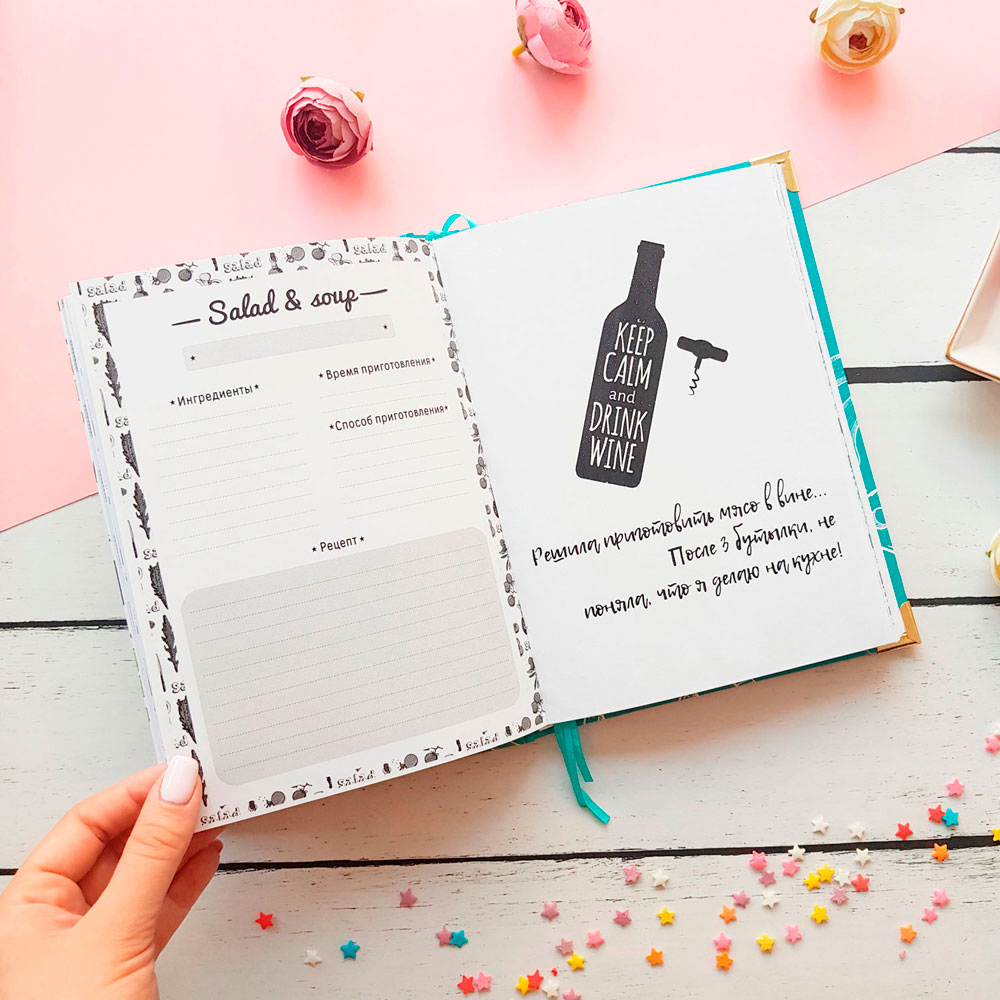 salad
salad
Salad & soup
*Ингредиенты*
*Время приготовления*
*Способ приготовления*
*Рецепт*
salad
salad
salad
KEEP
CALM
and
DRINK
WINE
Решила приготовить мясо в вине...
После 3 бутылки, не
поняла, что я делаю на кухне!